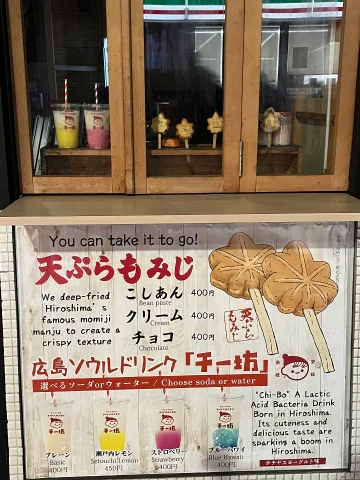 You can take it to go!
天ぷらもみじ
We deep-fried
Hiroshima's
famous momiji
manju to create a
crispy texture
こしあん 400円
Bean paste
クリーム 400円
Cream
チョコ 400円
Chocolate
天ぷら
もみじ
広島ソウルドリンク「チー坊」
選べるソーダorウォーター / Choose soda or water
プレーン
Basic
400円
瀬戸内レモン
Setouchi Lemon
450円
ストロベリー
Strawberry
ブルーハワイ
Blue Hawaii
"Chi-Bo" A Lactic
Acid Bacteria Drink
Born in Hiroshima.
Its cuteness and
delicious taste are
sparking a boom in
Hiroshima.
チチヤスヨーグルト味